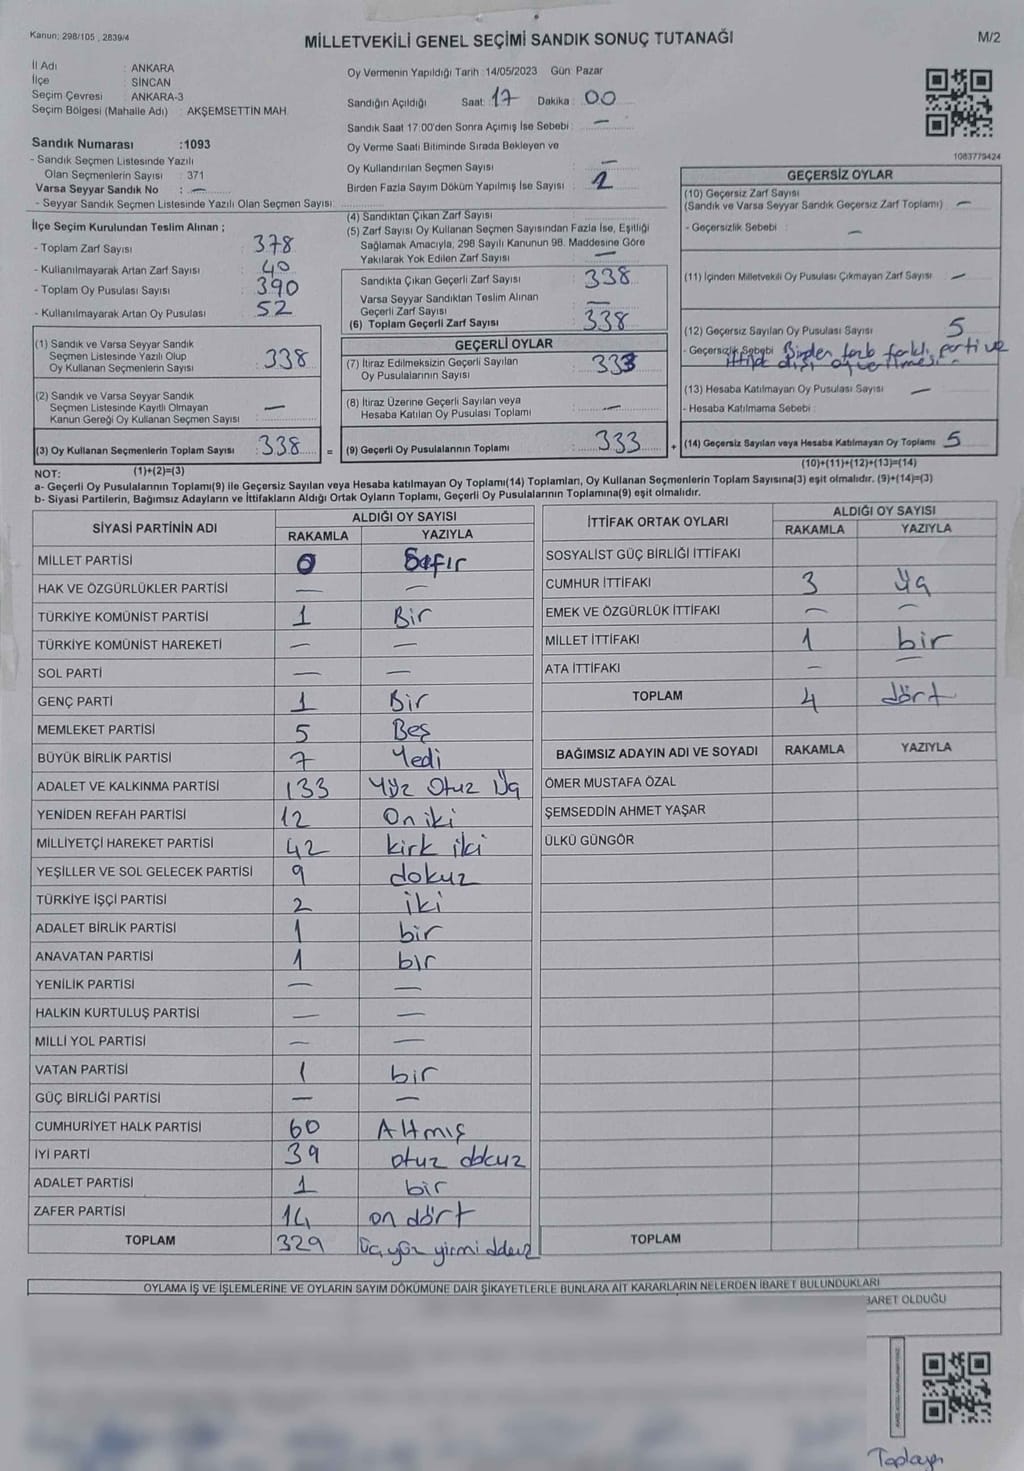 Kanun: 298/105 , 2839/4
MİLLETVEKİLİ GENEL SEÇİMİ SANDIK SONUÇ TUTANAĞI
M/2
İl Adı : ANKARA
İlçe : SİNCAN
Seçim Çevresi : ANKARA-3
Seçim Bölgesi (Mahalle Adı) : AKŞEMSETTİN MAH.
Oy Vermenin Yapıldığı Tarih :14/05/2023 Gün: Pazar
Sandığın Açıldığı Saat: 17 Dakika : 00
Sandık Saat 17:00'den Sonra Açımış İse Sebebi : —
Oy Verme Saati Bitiminde Sırada Bekleyen ve
Oy Kullandırılan Seçmen Sayısı —
Birden Fazla Sayım Döküm Yapılmış İse Sayısı :
1083779424
Sandık Numarası :1093
- Sandık Seçmen Listesinde Yazılı
Olan Seçmenlerin Sayısı : 371
Varsa Seyyar Sandık No : —
- Seyyar Sandık Seçmen Listesinde Yazılı Olan Seçmen Sayısı:
İlçe Seçim Kurulundan Teslim Alınan ;
- Toplam Zarf Sayısı : 378
- Kullanılmayarak Artan Zarf Sayısı : 40
- Toplam Oy Pusulası Sayısı : 390
- Kullanılmayarak Artan Oy Pusulası : 52
(1) Sandık ve Varsa Seyyar Sandık
Seçmen Listesinde Yazılı Olup
Oy Kullanan Seçmenlerin Sayısı : 338
(2) Sandık ve Varsa Seyyar Sandık
Seçmen Listesinde Kayıtlı Olmayan
Kanun Gereği Oy Kullanan Seçmen Sayısı : —
(3) Oy Kullanan Seçmenlerin Toplam Sayısı : 338 =
(4) Sandıktan Çıkan Zarf Sayısı :
(5) Zarf Sayısı Oy Kullanan Seçmen Sayısından Fazla İse, Eşitliği
Sağlamak Amacıyla, 298 Sayılı Kanunun 98. Maddesine Göre
Yakılarak Yok Edilen Zarf Sayısı : —
Sandıkta Çıkan Geçerli Zarf Sayısı : 338
Varsa Seyyar Sandıktan Teslim Alınan
Geçerli Zarf Sayısı : —
(6) Toplam Geçerli Zarf Sayısı : 338
GEÇERLİ OYLAR
(7) İtiraz Edilmeksizin Geçerli Sayılan
Oy Pusulalarının Sayısı : 333
(8) İtiraz Üzerine Geçerli Sayılan veya
Hesaba Katılan Oy Pusulası Toplamı : —
(9) Geçerli Oy Pusulalarının Toplamı : 333 +
GEÇERSİZ OYLAR
(10) Geçersiz Zarf Sayısı
(Sandık ve Varsa Seyyar Sandık Geçersiz Zarf Toplamı) : —
- Geçersizlik Sebebi : —
(11) İçinden Milletvekili Oy Pusulası Çıkmayan Zarf Sayısı : —
(12) Geçersiz Sayılan Oy Pusulası Sayısı : 5
- Geçersizlik Sebebi : Birden farklı parti ve
ittifak dışı oy verilmesi
(13) Hesaba Katılmayan Oy Pusulası Sayısı : —
- Hesaba Katılmama Sebebi :
(14) Geçersiz Sayılan veya Hesaba Katılmayan Oy Toplamı : 5
NOT: (1)+(2)=(3)
(10)+(11)+(12)+(13)=(14)
a- Geçerli Oy Pusulalarının Toplamı(9) ile Geçersiz Sayılan veya Hesaba katılmayan Oy Toplamı(14) Toplamları, Oy Kullanan Seçmenlerin Toplam Sayısına(3) eşit olmalıdır. (9)+(14)=(3)
b- Siyasi Partilerin, Bağımsız Adayların ve İttifakların Aldığı Ortak Oyların Toplamı, Geçerli Oy Pusulalarının Toplamına(9) eşit olmalıdır.
SİYASİ PARTİNİN ADI ALDIĞI OY SAYISI
RAKAMLA YAZIYLA
MİLLET PARTİSİ 0 Sıfır
HAK VE ÖZGÜRLÜKLER PARTİSİ — —
TÜRKİYE KOMÜNİST PARTİSİ 1 Bir
TÜRKİYE KOMÜNİST HAREKETİ — —
SOL PARTİ — —
GENÇ PARTİ 1 Bir
MEMLEKET PARTİSİ 5 Beş
BÜYÜK BİRLİK PARTİSİ 7 Yedi
ADALET VE KALKINMA PARTİSİ 133 Yüz Otuz Üç
YENİDEN REFAH PARTİSİ 12 On iki
MİLLİYETÇİ HAREKET PARTİSİ 42 kırk iki
YEŞİLLER VE SOL GELECEK PARTİSİ 9 dokuz
TÜRKİYE İŞÇİ PARTİSİ 2 iki
ADALET BİRLİK PARTİSİ 1 bir
ANAVATAN PARTİSİ 1 bır
YENİLİK PARTİSİ — —
HALKIN KURTULUŞ PARTİSİ — —
MİLLİ YOL PARTİSİ — —
VATAN PARTİSİ 1 bir
GÜÇ BİRLİĞİ PARTİSİ — —
CUMHURİYET HALK PARTİSİ 60 Altmış
İYİ PARTİ 39 otuz dokuz
ADALET PARTİSİ 1 bir
ZAFER PARTİSİ 14 on dört
TOPLAM 329 Üç yüz yirmi dokuz
İTTİFAK ORTAK OYLARI ALDIĞI OY SAYISI
RAKAMLA YAZIYLA
SOSYALİST GÜÇ BİRLİĞİ İTTİFAKI
CUMHUR İTTİFAKI 3 Üç
EMEK VE ÖZGÜRLÜK İTTİFAKI — —
MİLLET İTTİFAKI 1 bir
ATA İTTİFAKI — —
TOPLAM 4 dört
BAĞIMSIZ ADAYIN ADI VE SOYADI RAKAMLA YAZIYLA
ÖMER MUSTAFA ÖZAL
ŞEMSEDDİN AHMET YAŞAR
ÜLKÜ GÜNGÖR
TOPLAM
OYLAMA İŞ VE İŞLEMLERİNE VE OYLARIN SAYIM DÖKÜMÜNE DAİR ŞİKAYETLERLE BUNLARA AİT KARARLARIN NELERDEN İBARET BULUNDUKLARI
BARET OLDUĞU